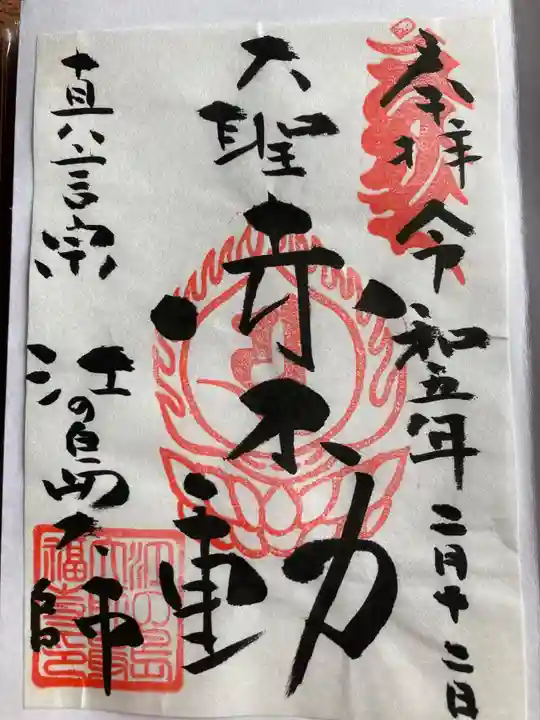 奉拝 令和五年二月十二日
大聖寺不動
真言宗 江の島大師